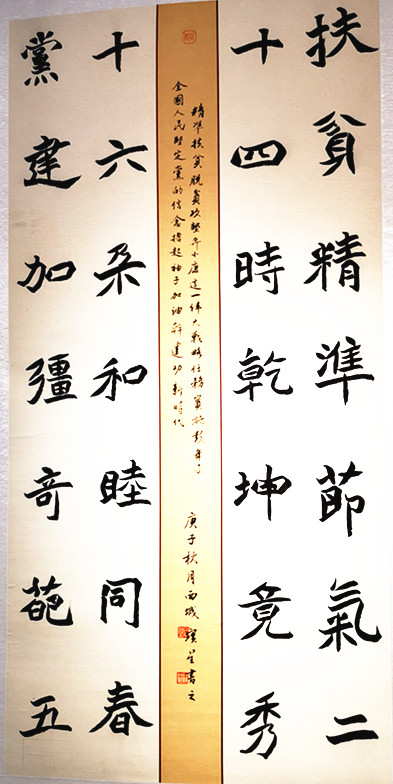 扶貧精準節氣二
十四時乾坤竟秀
精準扶貧脫貧攻堅奔小康這一偉大戰略任務實施數年了
全國人民堅定黨的信念擼起袖子加油幹建功新時代
庚子秋月西城星書之
黨建加彊奇葩五
十六朵和睦同春